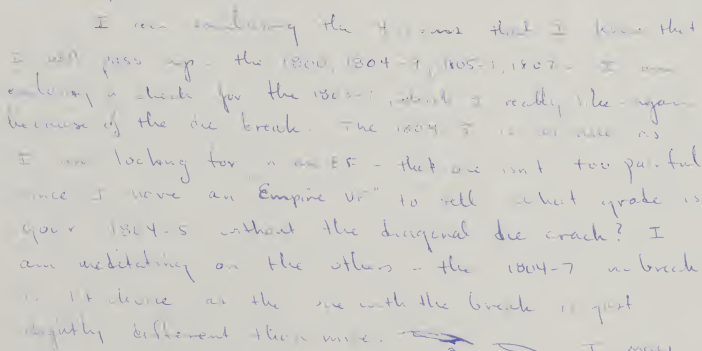 I am enclosing the 4 that I know that
I will pass up - the 1800, 1804-9, 1805-1, 1807 - I am
enclosing a check for the which I really like again
because of the die break. The 1804 is as
I am looking for EF - that one isn't too painful
since I have an "Empire VF" to sell what grade is
your 1804-5 without the diagonal die crack? I
am meditating on the others - the 1804-7 break
as the one with the break is just
slightly different than mine. I